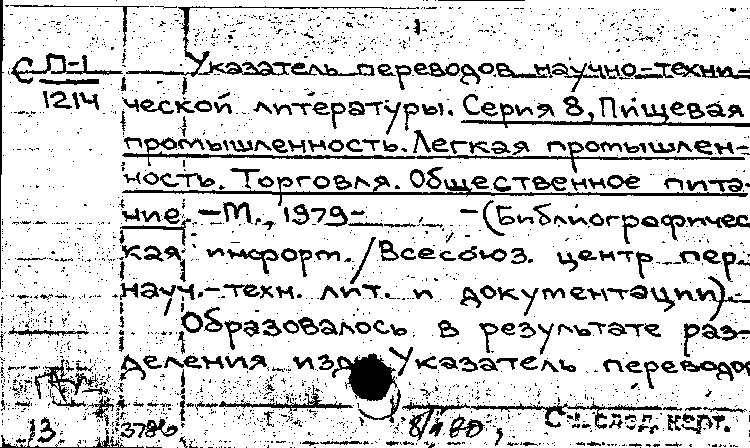 С П-1
1214
Указатель переводов научно-техни-
ческой литературы. Серия 8, Пищевая
промышленность. Легкая промышлен-
ность. Торговля. Общественное пита-
ние. — М., 1979- — (Библиографичес
кая информ. / Всесоюз. центр пер.
науч.-техн. лит. и документации).
Образовалось в результате раз-
деления изд. Указатель переводов
13 3786 См. след. карт.